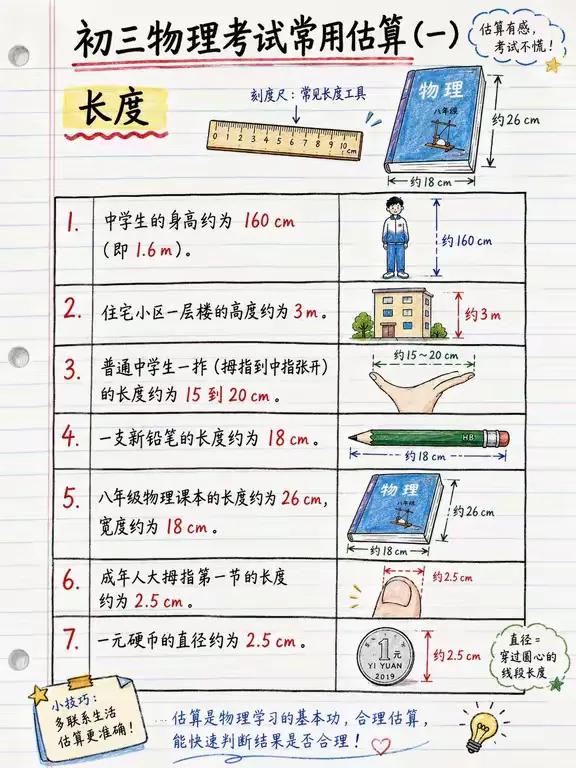 初三物理考试常用估算(一)
估算有感，
考试不慌！
长度
刻度尺：常见长度工具
0 1 2 3 4 5 6 7 8 9 10
cm
物理
八年级
约26 cm
约18 cm
1. 中学生的身高约为 160 cm
(即 1.6 m)。
约160 cm
2. 住宅小区一层楼的高度约为 3 m。
约3 m
3. 普通中学生一拃(拇指到中指张开)
的长度约为 15 到 20 cm。
约15~20 cm
4. 一支新铅笔的长度约为 18 cm。
HB
约18 cm
5. 八年级物理课本的长度约为 26 cm，
宽度约为 18 cm。
物理
八年级
约26 cm
约18 cm
6. 成年人大拇指第一节的长度
约为 2.5 cm。
约2.5 cm
7. 一元硬币的直径约为 2.5 cm。
1元
YI YUAN
2019
约2.5 cm
直径=
穿过圆心的
线段长度
小技巧：
多联系生活
估算更准确！
…估算是物理学习的基本功，合理估算，
能快速判断结果是否合理！